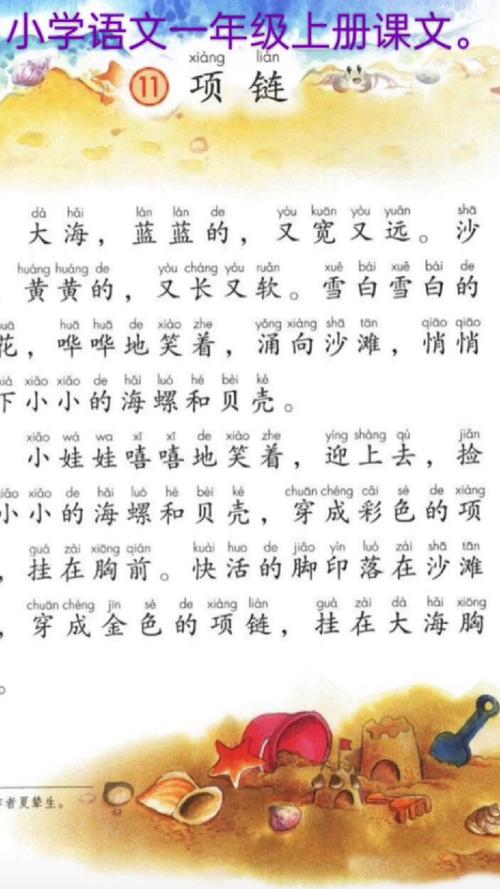 小学语文一年级上册课文。
xiàng liàn
11 项链
dà hǎi lán lán de yòu kuān yòu yuǎn shā
大海，蓝蓝的，又宽又远。沙
huáng huáng de yòu cháng yòu ruǎn xuě bái xuě bái de
黄黄的，又长又软。雪白雪白的
huā huā de xiào zhe yǒng xiàng shā tān qiāo qiāo
花，哗哗地笑着，涌向沙滩，悄悄
xiǎo xiǎo de hǎi luó hé bèi ké
下小小的海螺和贝壳。
xiǎo wá wa xī xī de xiào zhe yíng shàng qù jiǎn
小娃娃嘻嘻地笑着，迎上去，捡
xiǎo de hǎi luó hé bèi ké chuān chéng cǎi sè de xiàng
小小的海螺和贝壳，穿成彩色的项
guà zài xiōng qián kuài huo de jiǎo yìn luò zài shā tān
，挂在胸前。快活的脚印落在沙滩
chuān chéng jīn sè de xiàng liàn guà zài dà hǎi xiōng
，穿成金色的项链，挂在大海胸
。
者夏辇生。